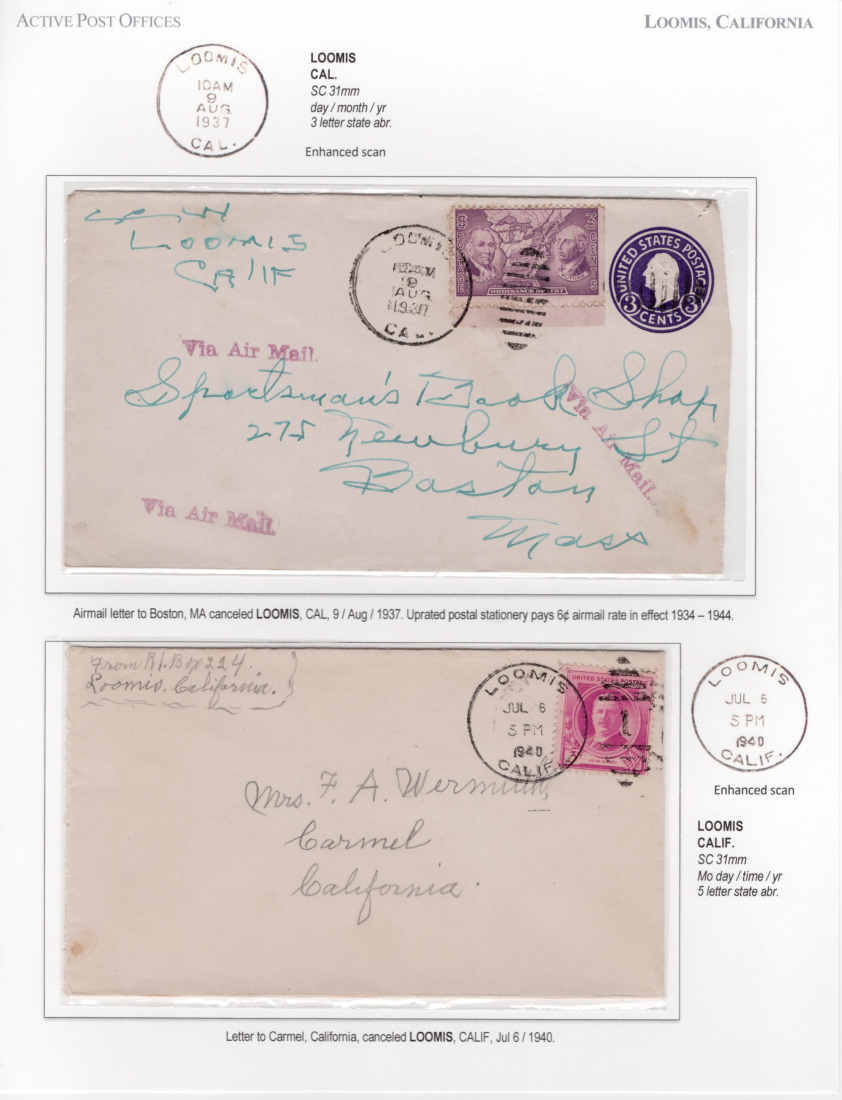 ACTIVE POST OFFICES
LOOMIS, CALIFORNIA
LOOMIS
10AM
9
AUG.
1937
CAL.
LOOMIS
CAL.
SC 31mm
day / month / yr
3 letter state abr.
Enhanced scan
LOOMIS
CALIF
LOOMIS
9
AUG.
1937
CAL.
3
CENTS
ORDINANCE OF 1787
UNITED STATES POSTAGE
3 CENTS 3
Via Air Mail.
Sportsman's Book Shop
275 Newbury St
Boston
Mass
Via Air Mail.
Via Air Mail.
Airmail letter to Boston, MA canceled LOOMIS, CAL, 9 / Aug / 1937. Uprated postal stationery pays 6¢ airmail rate in effect 1934 – 1944.
From R1. Box 224.
Loomis. California.
LOOMIS
JUL 6
5 PM
1940
CALIF.
UNITED STATES POSTAGE
Mrs. F. A. Wermuth,
Carmel
California.
LOOMIS
JUL 6
5 PM
1940
CALIF.
Enhanced scan
LOOMIS
CALIF.
SC 31mm
Mo day / time / yr
5 letter state abr.
Letter to Carmel, California, canceled LOOMIS, CALIF, Jul 6 / 1940.